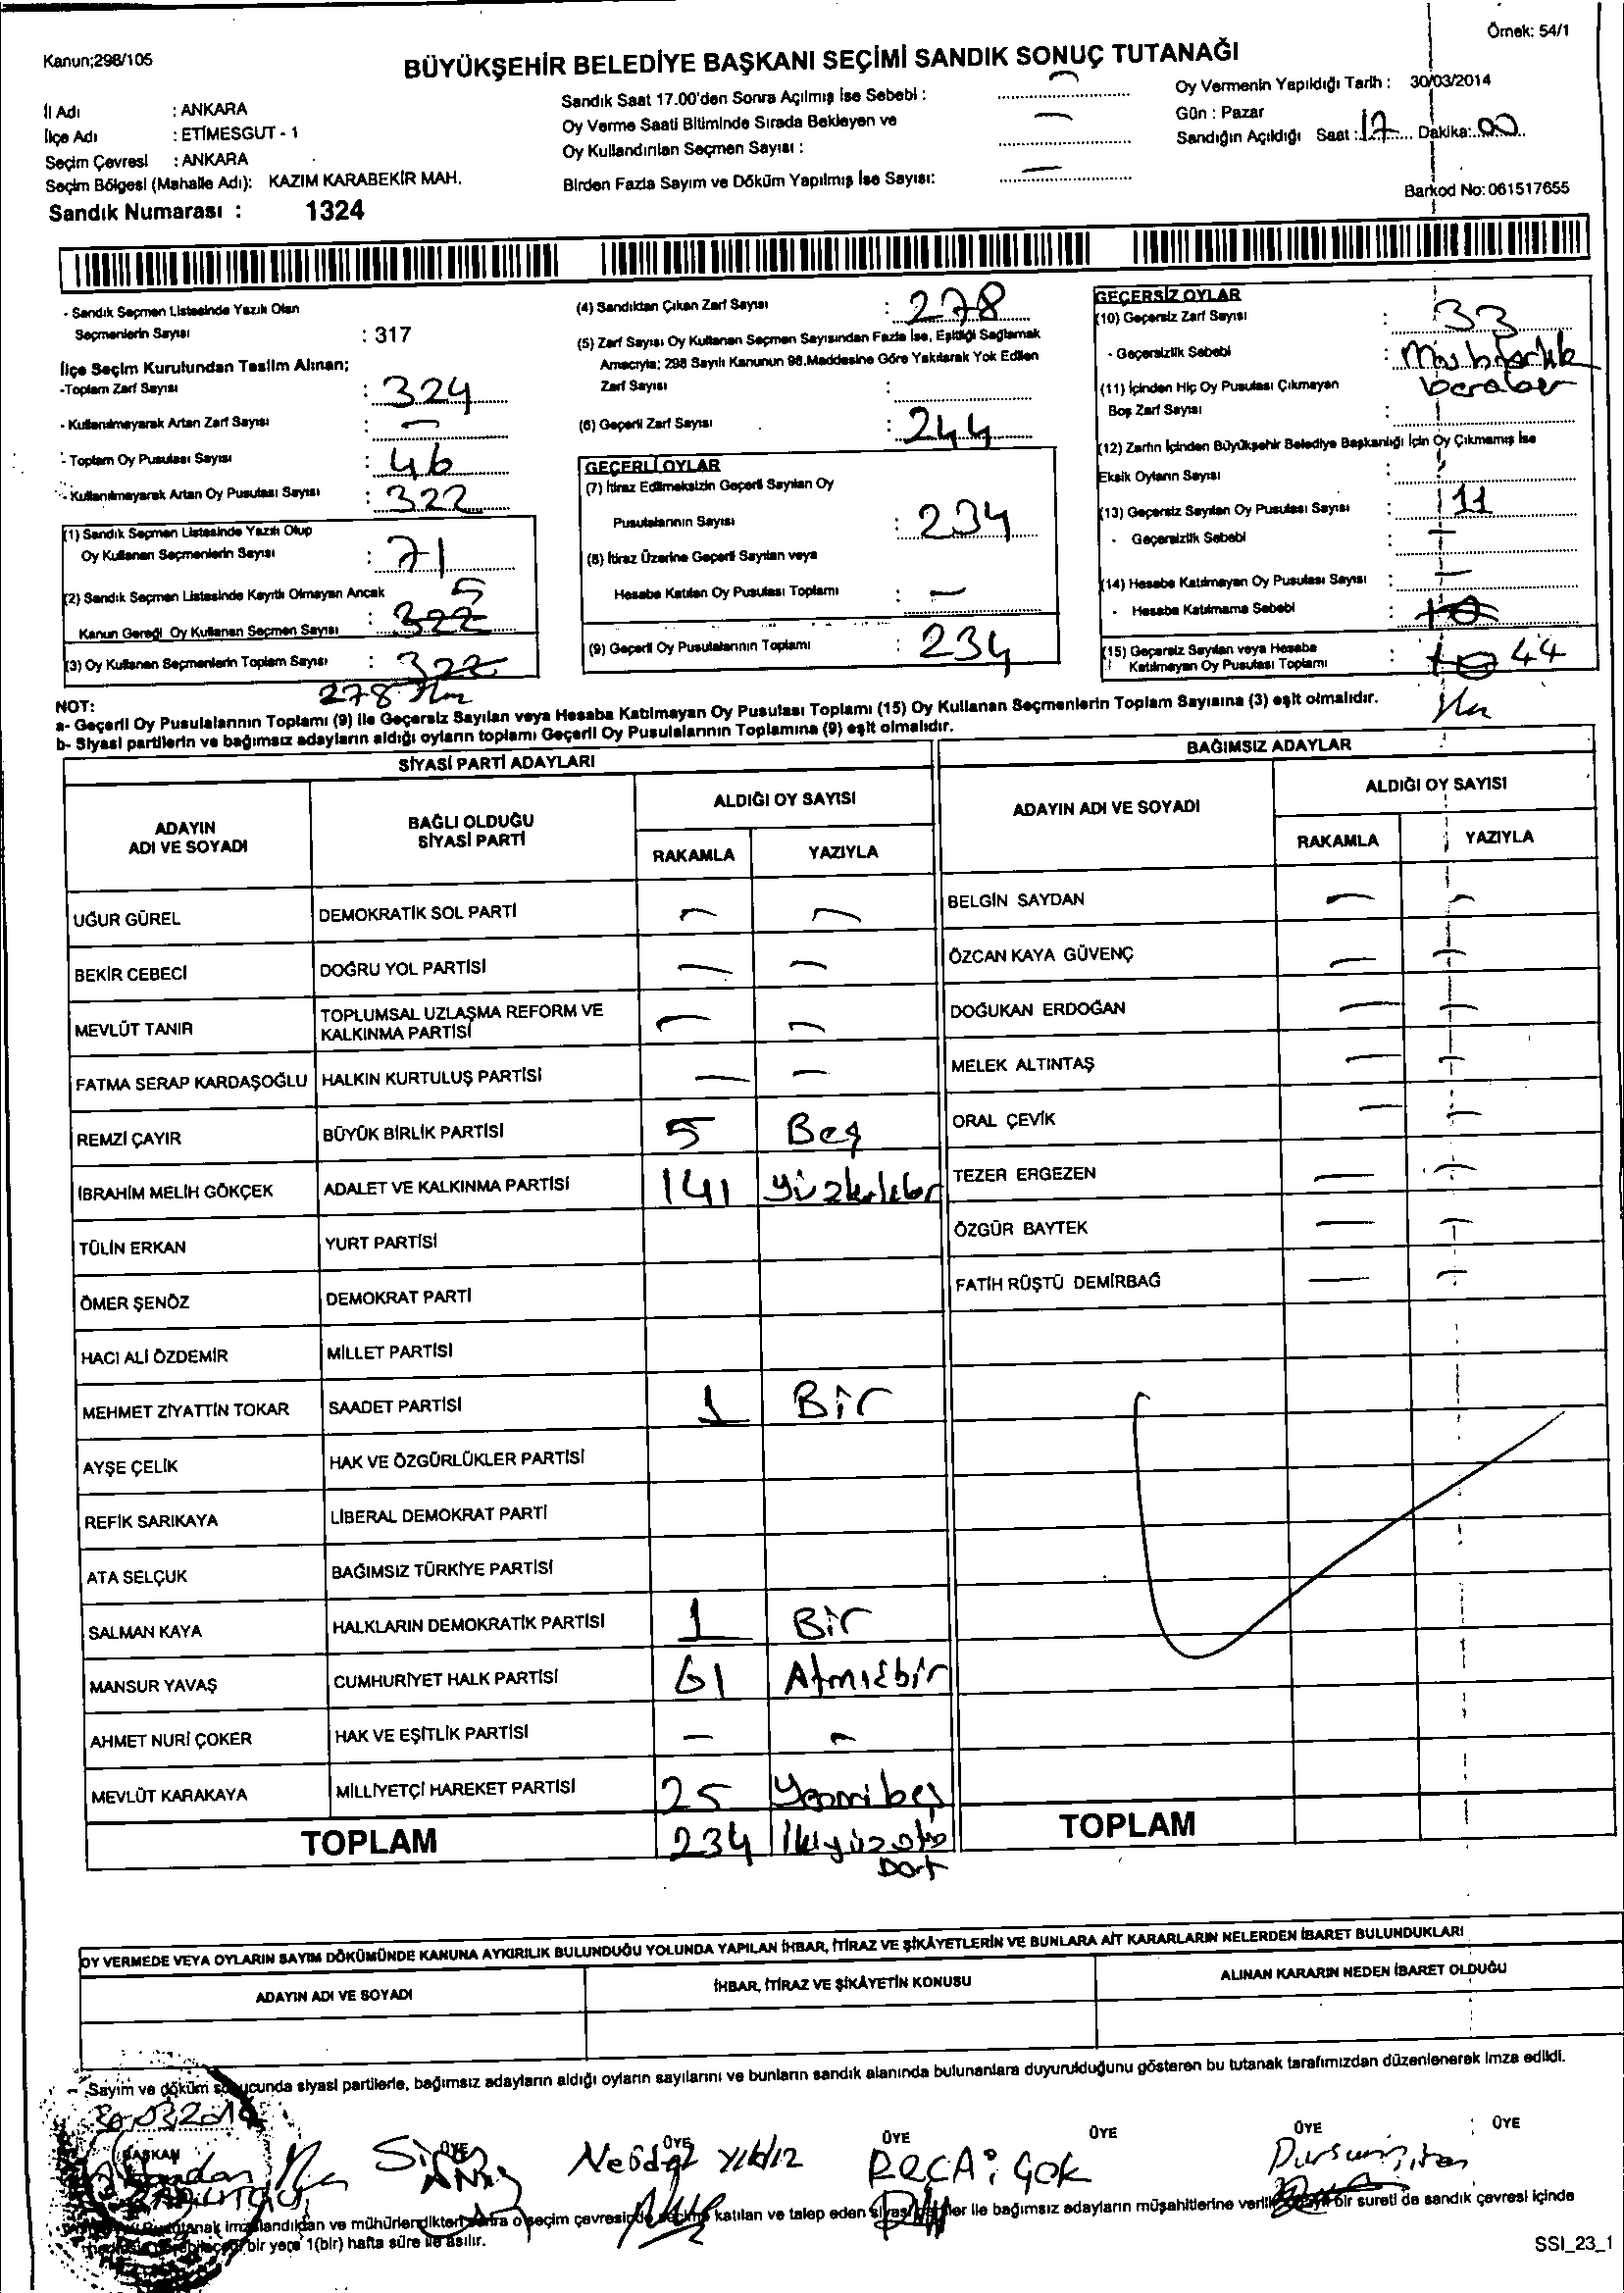 Örnek: 54/1
Kanun;298/105
BÜYÜKŞEHİR BELEDİYE BAŞKANI SEÇİMİ SANDIK SONUÇ TUTANAĞI
İl Adı : ANKARA
İlçe Adı : ETİMESGUT - 1
Seçim Çevresi : ANKARA
Seçim Bölgesi (Mahalle Adı): KAZIM KARABEKİR MAH.
Sandık Numarası : 1324
Sandık Saat 17.00'den Sonra Açılmış İse Sebebi : —
Oy Verme Saati Bitiminde Sırada Bekleyen ve
Oy Kullandırılan Seçmen Sayısı : —
Birden Fazla Sayım ve Döküm Yapılmış İse Sayısı: —
Oy Vermenin Yapıldığı Tarih : 30/03/2014
Gün : Pazar
Sandığın Açıldığı Saat : 17 Dakika: 00
Barkod No: 061517655
- Sandık Seçmen Listesinde Yazılı Olan
Seçmenlerin Sayısı : 317
İlçe Seçim Kurulundan Teslim Alınan;
-Toplam Zarf Sayısı : 324
- Kullanılmayarak Artan Zarf Sayısı : —
- Toplam Oy Pusulası Sayısı : 46
- Kullanılmayarak Artan Oy Pusulası Sayısı : 322
(1) Sandık Seçmen Listesinde Yazılı Olup
Oy Kullanan Seçmenlerin Sayısı : 71
(2) Sandık Seçmen Listesinde Kayıtlı Olmayan Ancak 5
Kanun Gereği Oy Kullanan Seçmen Sayısı : 322
(3) Oy Kullanan Seçmenlerin Toplam Sayısı : 322
278
(4) Sandıktan Çıkan Zarf Sayısı : 278
(5) Zarf Sayısı Oy Kullanan Seçmen Sayısından Fazla İse, Eşitliği Sağlamak
Amacıyla; 298 Sayılı Kanunun 98.Maddesine Göre Yakılarak Yok Edilen
Zarf Sayısı :
(6) Geçerli Zarf Sayısı : 244
GEÇERLİ OYLAR
(7) İtiraz Edilmeksizin Geçerli Sayılan Oy
Pusulalarının Sayısı : 234
(8) İtiraz Üzerine Geçerli Sayılan veya
Hesaba Katılan Oy Pusulası Toplamı : —
(9) Geçerli Oy Pusulalarının Toplamı : 234
GEÇERSİZ OYLAR
(10) Geçersiz Zarf Sayısı : 33
- Geçersizlik Sebebi :
beraber
(11) İçinden Hiç Oy Pusulası Çıkmayan
Boş Zarf Sayısı :
(12) Zarfın İçinden Büyükşehir Belediye Başkanlığı İçin Oy Çıkmamış İse
Eksik Oyların Sayısı :
(13) Geçersiz Sayılan Oy Pusulası Sayısı : 11
- Geçersizlik Sebebi : —
(14) Hesaba Katılmayan Oy Pusulası Sayısı : —
- Hesaba Katılmama Sebebi : 10
(15) Geçersiz Sayılan veya Hesaba
Katılmayan Oy Pusulası Toplamı : 10 44
NOT:
a- Geçerli Oy Pusulalarının Toplamı (9) ile Geçersiz Sayılan veya Hesaba Katılmayan Oy Pusulası Toplamı (15) Oy Kullanan Seçmenlerin Toplam Sayısına (3) eşit olmalıdır.
b- Siyasi partilerin ve bağımsız adayların aldığı oyların toplamı Geçerli Oy Pusulalarının Toplamına (9) eşit olmalıdır.
SİYASİ PARTİ ADAYLARI
ADAYIN
ADI VE SOYADI
BAĞLI OLDUĞU
SİYASİ PARTİ
ALDIĞI OY SAYISI
RAKAMLA YAZIYLA
UĞUR GÜREL DEMOKRATİK SOL PARTİ — —
BEKİR CEBECİ DOĞRU YOL PARTİSİ — —
MEVLÜT TANIR TOPLUMSAL UZLAŞMA REFORM VE
KALKINMA PARTİSİ — —
FATMA SERAP KARDAŞOĞLU HALKIN KURTULUŞ PARTİSİ — —
REMZİ ÇAYIR BÜYÜK BİRLİK PARTİSİ 5 Beş
İBRAHİM MELİH GÖKÇEK ADALET VE KALKINMA PARTİSİ 141
TÜLİN ERKAN YURT PARTİSİ
ÖMER ŞENÖZ DEMOKRAT PARTİ
HACI ALİ ÖZDEMİR MİLLET PARTİSİ
MEHMET ZİYATTİN TOKAR SAADET PARTİSİ 1 Bir
AYŞE ÇELİK HAK VE ÖZGÜRLÜKLER PARTİSİ
REFİK SARIKAYA LİBERAL DEMOKRAT PARTİ
ATA SELÇUK BAĞIMSIZ TÜRKİYE PARTİSİ
SALMAN KAYA HALKLARIN DEMOKRATİK PARTİSİ 1 Bir
MANSUR YAVAŞ CUMHURİYET HALK PARTİSİ 61 Atmışbir
AHMET NURİ ÇOKER HAK VE EŞİTLİK PARTİSİ — —
MEVLÜT KARAKAYA MİLLİYETÇİ HAREKET PARTİSİ 25 Yirmibeş
TOPLAM 234 İkiyüzotz
Dört
BAĞIMSIZ ADAYLAR
ADAYIN ADI VE SOYADI
ALDIĞI OY SAYISI
RAKAMLA YAZIYLA
BELGİN SAYDAN — —
ÖZCAN KAYA GÜVENÇ — —
DOĞUKAN ERDOĞAN — —
MELEK ALTINTAŞ — —
ORAL ÇEVİK — —
TEZER ERGEZEN — —
ÖZGÜR BAYTEK — —
FATİH RÜŞTÜ DEMİRBAĞ — —
TOPLAM
OY VERMEDE VEYA OYLARIN SAYIM DÖKÜMÜNDE KANUNA AYKIRILIK BULUNDUĞU YOLUNDA YAPILAN İHBAR, İTİRAZ VE ŞİKÂYETLERİN VE BUNLARA AİT KARARLARIN NELERDEN İBARET BULUNDUKLARI
ADAYIN ADI VE SOYADI
İHBAR, İTİRAZ VE ŞİKÂYETİN KONUSU
ALINAN KARARIN NEDEN İBARET OLDUĞU
Sayım ve döküm sonucunda siyasi partilerle, bağımsız adayların aldığı oyların sayılarını ve bunların sandık alanında bulunanlara duyurulduğunu gösteren bu tutanak tarafımızdan düzenlenerek imza edildi.
BAŞKAN ÜYE ÜYE ÜYE ÜYE ÜYE ÜYE
RECAİ GÖK
katılan ve talep eden ile bağımsız adayların müşahitlerine bir sureti de sandık çevresi içinde
bir yere 1(bir) hafta süre ile asılır.
SSI_23_1